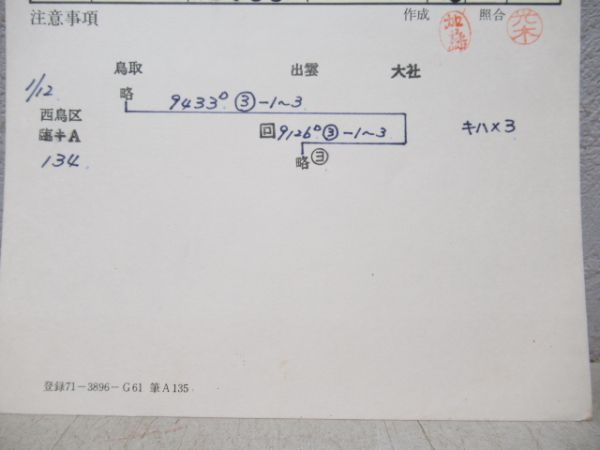 注意事項 作成 照合
鳥取 出雲 大社
1/12 略 9433D ③-1~3
西鳥区 回9126D ③-1~3 キハ×3
臨キA
134 略 ③
登録71-3896-G61 筆A135